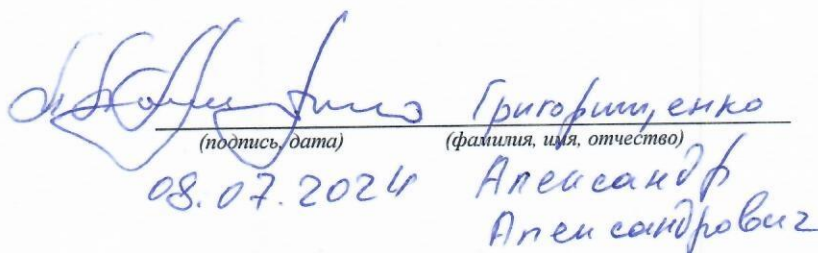 Григорищенко
(подпись, дата) (фамилия, имя, отчество)
08.07.2024 Александр
Александрович